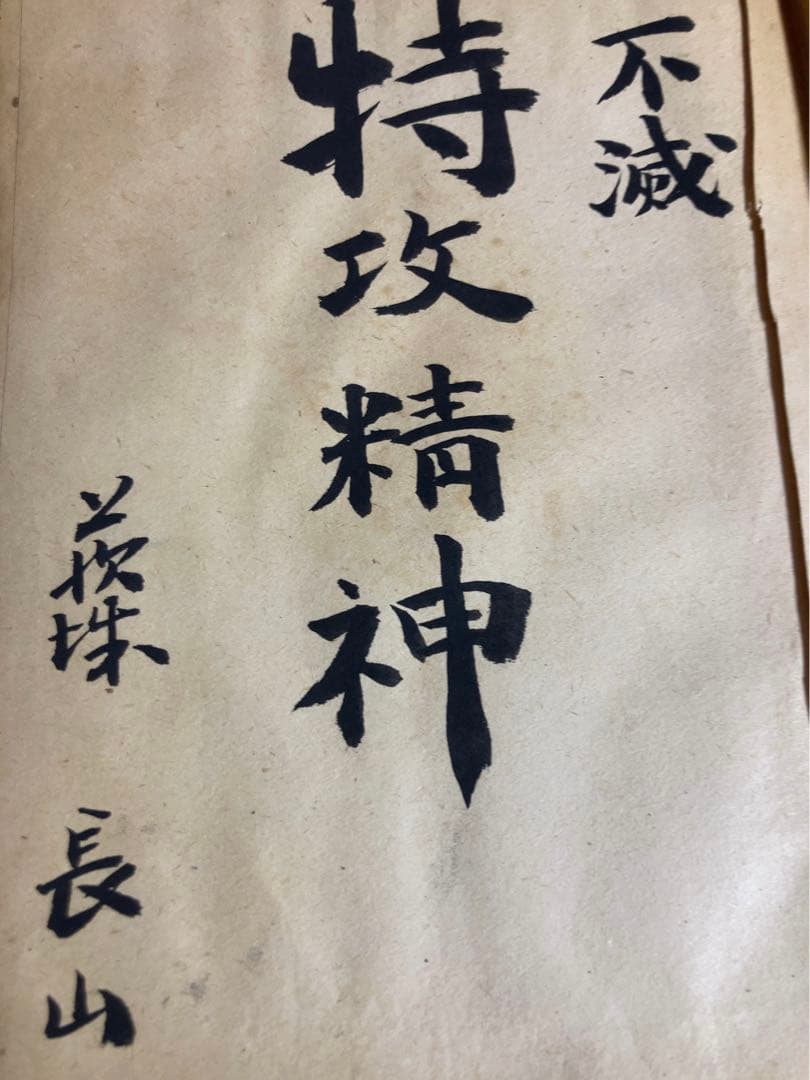 不滅
特攻精神
茨城 長山